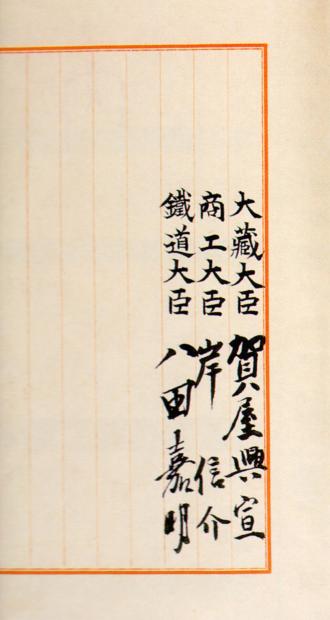 大藏大臣 賀屋興宣
商工大臣 岸信介
鐵道大臣 八田嘉明